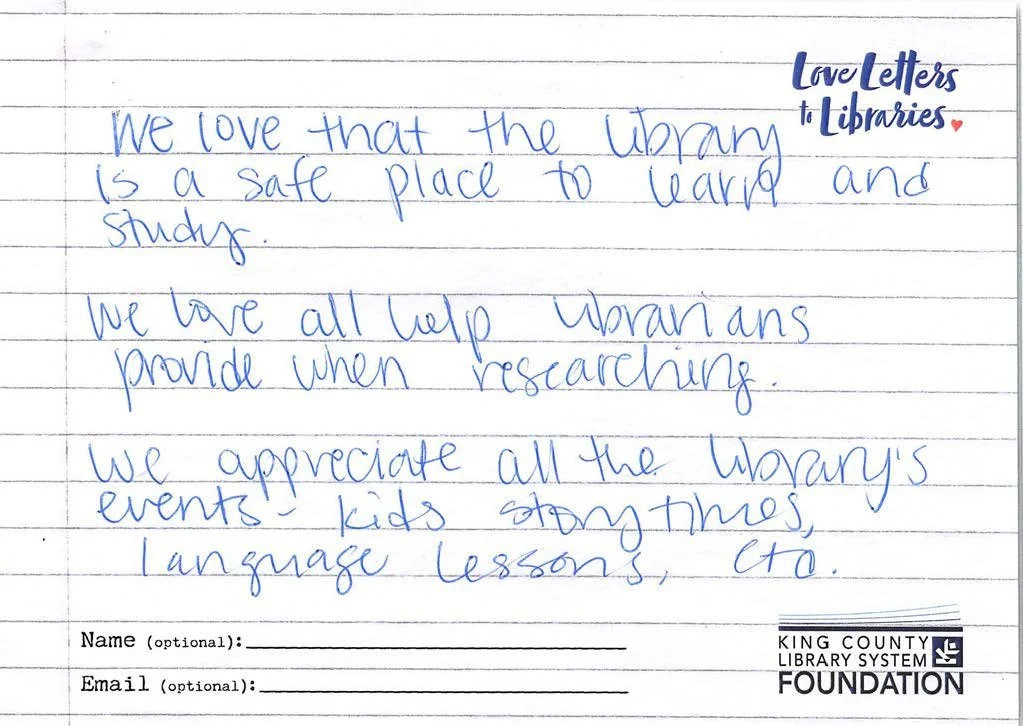 Love Letters
to Libraries
We love that the library
is a safe place to learn and
study.
We love all help librarians
provide when researching.
We appreciate all the library's
events - kids storytimes,
language lessons, etc.
Name (optional):
Email (optional):
KING COUNTY
LIBRARY SYSTEM
FOUNDATION